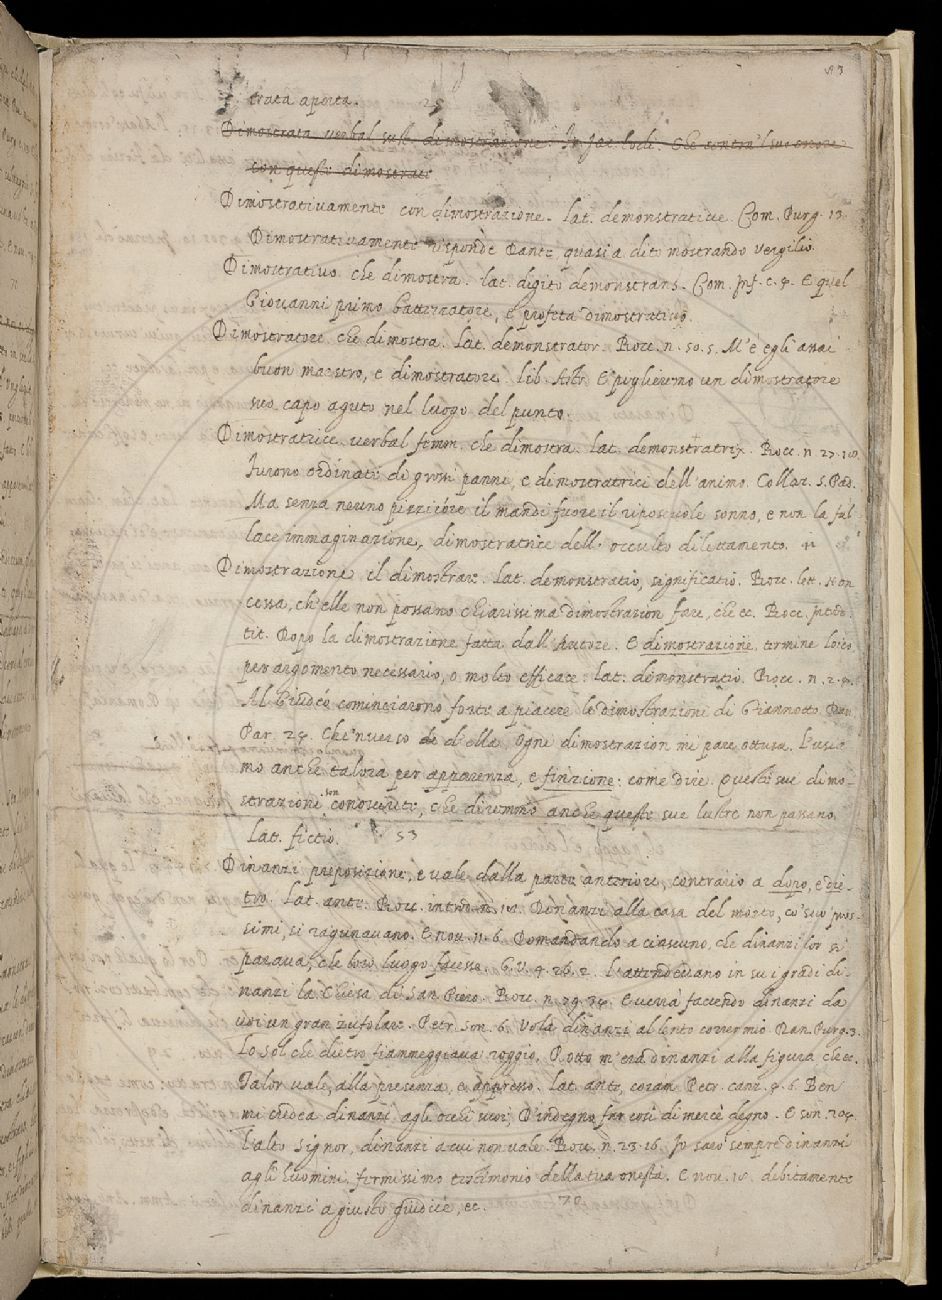 trata aposta. 25
Dimostrata verbal sust. dimostrazione. In contra 'l suo errore
con questi dimostrati
Dimostrativamente con dimostrazione. lat. demonstrative. Com. Purg. 13.
Dimostrativamente risponde Dante, quasi a dito mostrando Vergilio.
Dimostrativo che dimostra. lat. digito demonstrans. Com. Inf. c. 4. E quel
Giovanni primo battezzatore, e profeta dimostrativo.
Dimostratore che dimostra. lat. demonstrator. Bocc. n. 50. 5. M'è egli assai
buon maestro, e dimostratore. lib. Astr. E piglieremo un dimostratore
suo capo aguto nel luogo del punto.
Dimostratrice verbal femm. che dimostra. lat. demonstratrix. Bocc. n. 27.
furono ordinati di grossi panni, e dimostratrici dell'animo. Collaz. S. Pad.
Ma senza neuno pizzicore il mandi fuore il riposevole sonno, e non la fal-
lace immaginazione, dimostratrice dell' occulto dilettamento.
Dimostrazione il dimostrare. lat. demonstratio, significatio. Bocc. lett.
cessa, ch'elle non possano chiarissima dimostrazion fare, che ec. Bocc.
tit. Dopo la dimostrazione fatta dall'Autore. E dimostrazione, termine loico,
per argomento necessario, o molto efficace. lat. demonstratio. Bocc. n. 2.
Al Giudeo cominciarono forte a piacere le dimostrazioni di Giannotto. Dan.
Par. 24. Che 'nverso d'ella, ogni dimostrazion mi pare ottusa. L'usia-
mo anche talora per apparenza, e finzione: come dire. Queste sue dimo-
strazioni son conosciute, che diremmo anche queste sue lustre non passano.
Lat. fictio. 53
Dinanzi preposizione, e vale dalla parte anteriore, contrario a dopo, e die-
tro. Lat. ante. Bocc. introd. n. Dinanzi alla casa del morto, co' suo' pros-
simi, si ragunavano. E nov. 11. 6. Domandando a ciascuno, che dinanzi lor si
parava, che loro luogo facesse. G.V. 4. 26. 2. L'attendevano in su i gradi di-
nanzi la Chiesa di San Piero. Bocc. n. 79. 34. E verrà faccendo dinanzi da
voi un gran zufolare. Petr. son. 6. Vola dinanzi al lento correr mio. Dan. Purg. 3.
Lo Sol che dietro fiammeggiava roggio, Rotto m'era dinanzi alla figura che ec.
Talor vale, alla presenza, e appresso. lat. ante, coram. Petr. canz. 4. 6. Ben
mi credea dinanzi agli occhi suoi, D'indegno far così di mercè degno. E son. 204.
L'alto Signor, dinanzi a cui non vale. Bocc. n. 23. 16. Io sarò sempre dinanzi
agli huomini fermissimo testimonio della tua onestà. E nov. 18. debitamente
dinanzi a giusto giudice, ec. 70